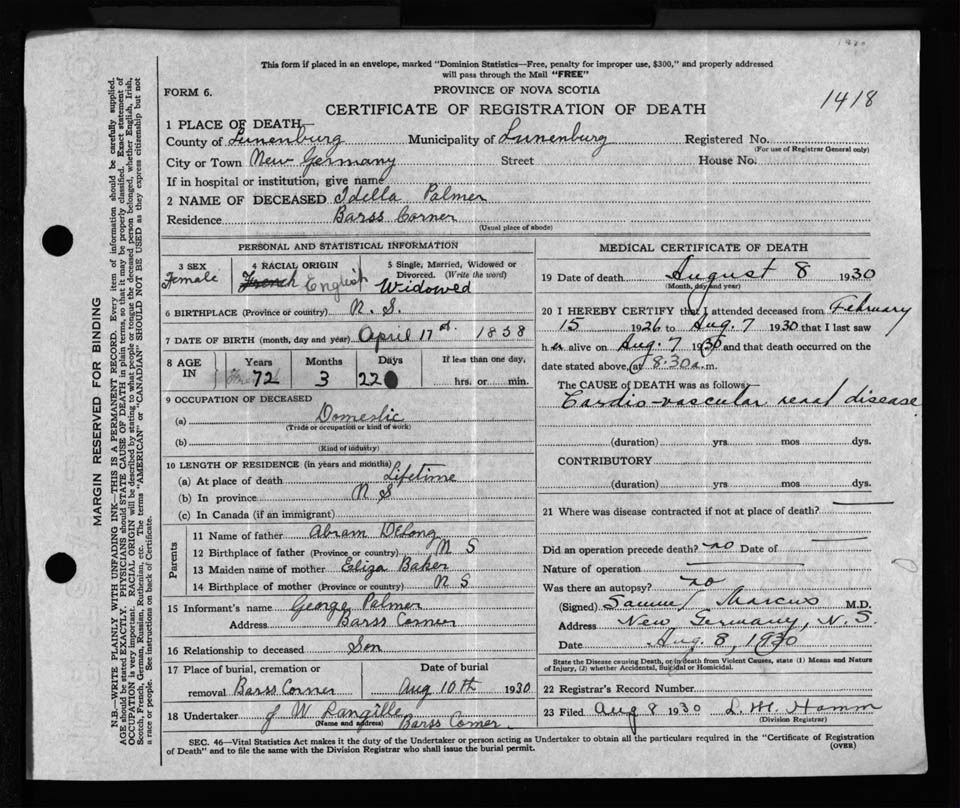 This form if placed in an envelope, marked "Dominion Statistics—Free, penalty for improper use, $300," and properly addressed
will pass through the Mail "FREE"
FORM 6.
PROVINCE OF NOVA SCOTIA
CERTIFICATE OF REGISTRATION OF DEATH
1418
1 PLACE OF DEATH
County of Lunenburg Municipality of Lunenburg Registered No.
(For use of Registrar General only)
City or Town New Germany Street House No.
If in hospital or institution, give name
2 NAME OF DECEASED Idella Palmer
Residence Barss Corner
(Usual place of abode)
PERSONAL AND STATISTICAL INFORMATION
3 SEX
Female
4 RACIAL ORIGIN
French English
5 Single, Married, Widowed or
Divorced. (Write the word)
Widowed
6 BIRTHPLACE (Province or country) N. S.
7 DATE OF BIRTH (month, day and year) April 17st 1858
8 AGE IN
Years Months Days If less than one day,
72 3 22 hrs. or min.
9 OCCUPATION OF DECEASED
(a) Domestic
(Trade or occupation or kind of work)
(b)
(Kind of industry)
10 LENGTH OF RESIDENCE (in years and months)
(a) At place of death Lifetime
(b) In province N S
(c) In Canada (if an immigrant)
Parents
11 Name of father Abram DeLong
12 Birthplace of father (Province or country) N S
13 Maiden name of mother Eliza Baker
14 Birthplace of mother (Province or country) N S
15 Informant's name George Palmer
Address Barss Corner
16 Relationship to deceased Son
17 Place of burial, cremation or Date of burial
removal Barss Corner Aug 10th 1930
18 Undertaker J W Rangille
(Name and address) Barss Corner
MEDICAL CERTIFICATE OF DEATH
19 Date of death August 8 1930
(Month, day and year)
20 I HEREBY CERTIFY that I attended deceased from February
15 1926 to Aug. 7 1930 that I last saw
her alive on Aug. 7 1930 and that death occurred on the
date stated above, at 8:30 a.m.
The CAUSE of DEATH was as follows
Cardio-vascular renal disease
(duration) yrs mos dys.
CONTRIBUTORY
(duration) yrs. mos dys.
21 Where was disease contracted if not at place of death?
Did an operation precede death? no Date of
Nature of operation
Was there an autopsy? no
(Signed) Samuel Marcus M.D.
Address New Germany, N. S.
Date Aug. 8, 1930
State the Disease causing Death, or in death from Violent Causes, state (1) Means and Nature
of Injury, (2) whether Accidental, Suicidal or Homicidal.
22 Registrar's Record Number
23 Filed Aug 8 1930 L. M. Hamm
(Division Registrar)
SEC. 46—Vital Statistics Act makes it the duty of the Undertaker or person acting as Undertaker to obtain all the particulars required in the "Certificate of Registration
of Death" and to file the same with the Division Registrar who shall issue the burial permit.
(OVER)
MARGIN RESERVED FOR BINDING
N.B.—WRITE PLAINLY, WITH UNFADING INK—THIS IS A PERMANENT RECORD. Every item of information should be carefully supplied.
AGE should be stated EXACTLY. PHYSICIANS should STATE CAUSE OF DEATH in plain terms, so that it may be properly classified. Exact statement of
OCCUPATION is very important. RACIAL ORIGIN will be described by stating to what people or tongue the deceased person belonged, whether English, Irish,
Scotch, French, German, Russian, Ruthenian, etc. The terms "AMERICAN" or "CANADIAN" SHOULD NOT BE USED as they express citizenship but not
a race or people. See instructions on back of Certificate.